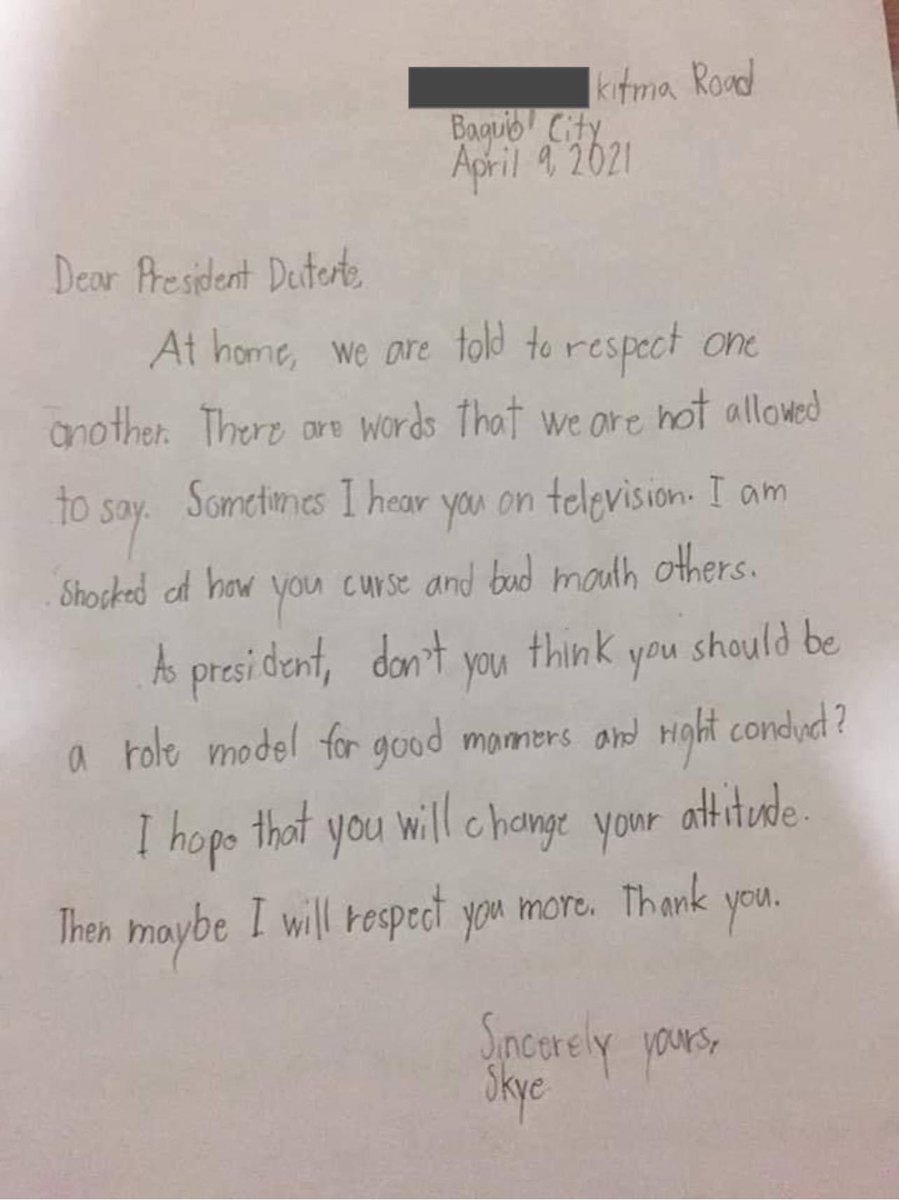 kitma Road
Baguio City
April 9, 2021
Dear President Duterte,
At home, we are told to respect one
another. There are words that we are not allowed
to say. Sometimes I hear you on television. I am
shocked at how you curse and bad mouth others.
As president, don't you think you should be
a role model for good manners and right conduct?
I hope that you will change your attitude.
Then maybe I will respect you more. Thank you.
Sincerely yours,
Skye